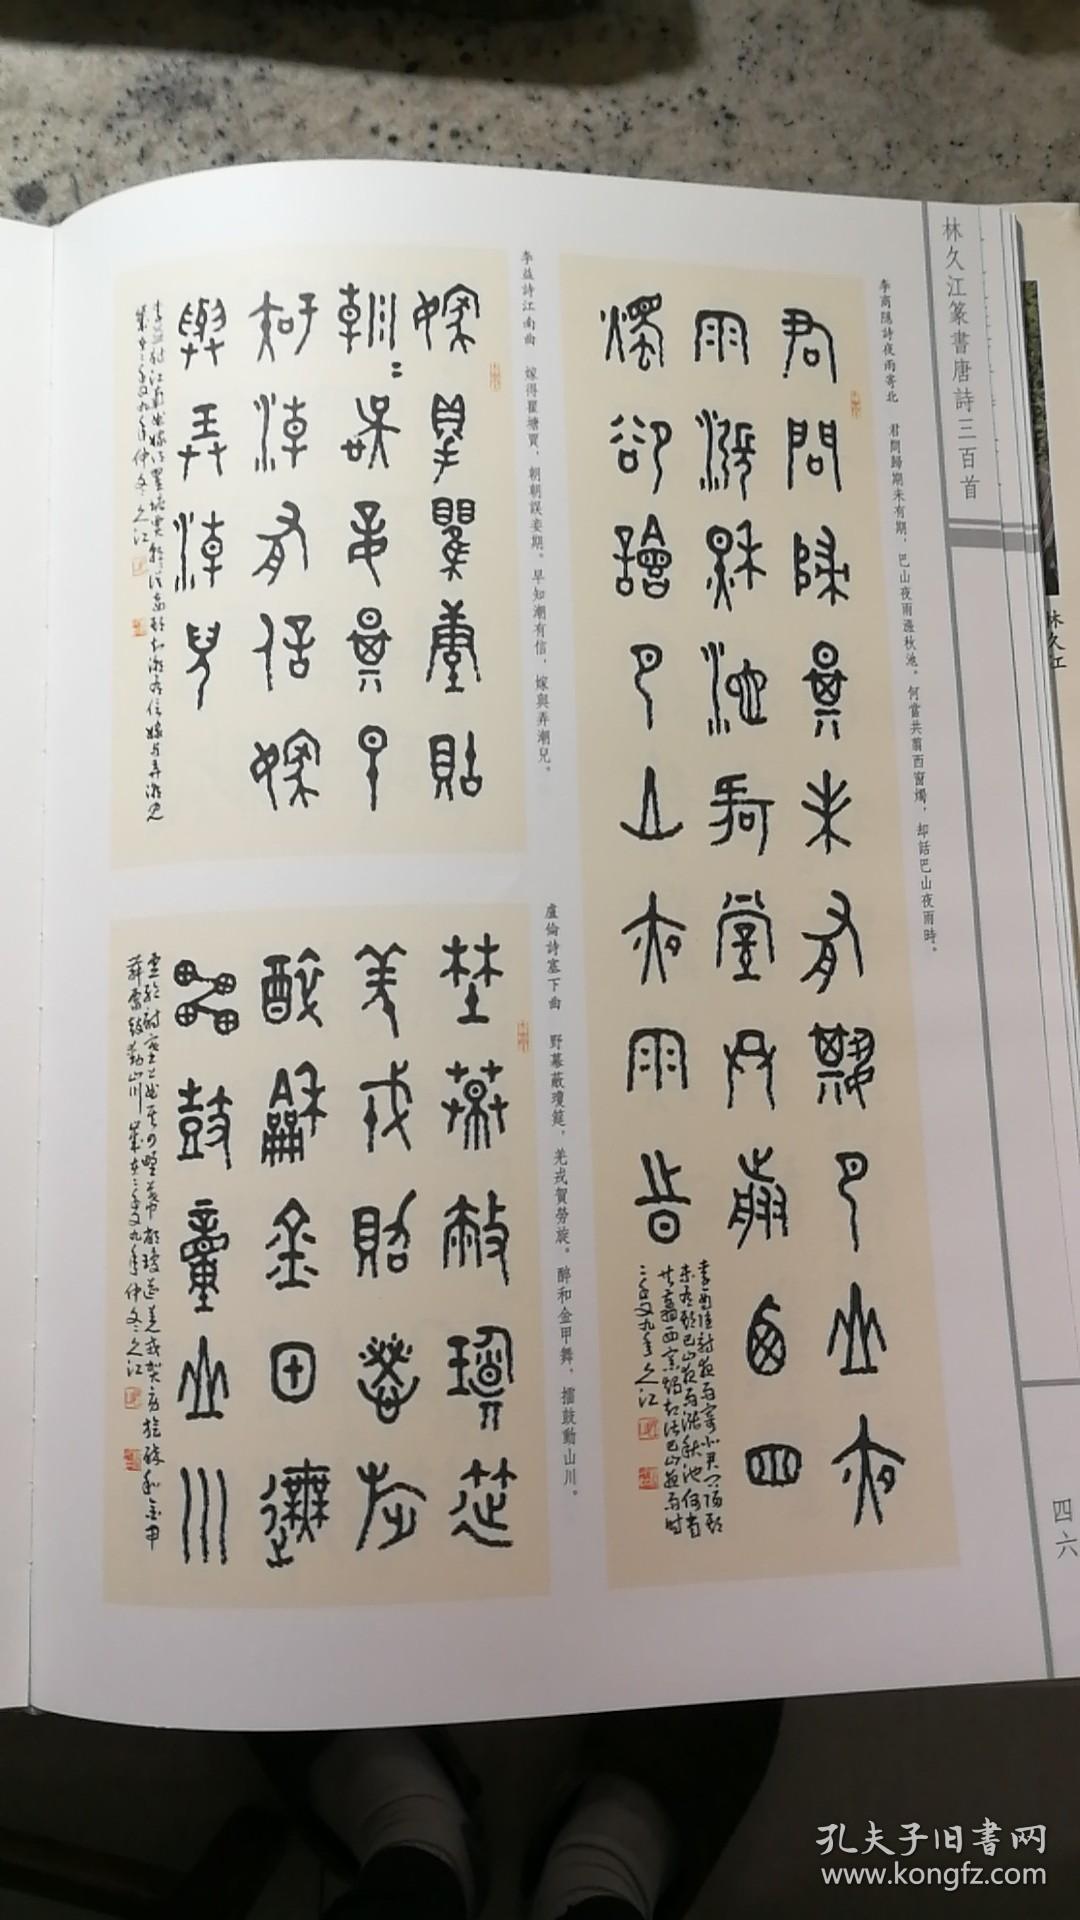 林久江篆書唐詩三百首
四六
林久江
李商隱詩夜雨寄北 君問歸期未有期，巴山夜雨漲秋池。何當共翦西窗燭，却話巴山夜雨時。
君問歸期未有期巴山夜
雨漲秋池何當共翦西窗
燭卻話巴山夜雨時
李益詩江南曲 嫁得瞿塘賈，朝朝誤妾期。早知潮有信，嫁與弄潮兒。
嫁得瞿塘賈
朝〻誤妾期早
知潮有信嫁
與弄潮兒
盧倫詩塞下曲 野幕蔽瓊筵，羌戎賀勞旋。醉和金甲舞，擂鼓動山川。
野幕蔽瓊筵
羌戎賀勞旋
醉和金甲舞
擂鼓動山川
孔夫子旧書网
www.kongfz.com